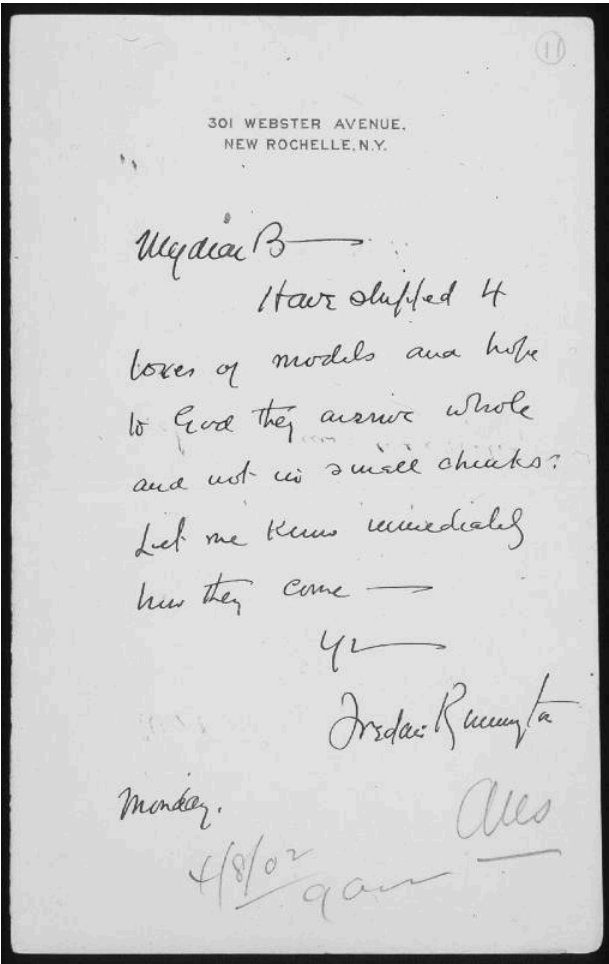 11
301 WEBSTER AVENUE.
NEW ROCHELLE, N.Y.
My dear B—
Have shipped 4
boxes of models and hope
to God they arrive whole
and not in small chunks.
Let me know immediately
how they come —
Yr—
Frederic Remington
Monday.
4/8/02